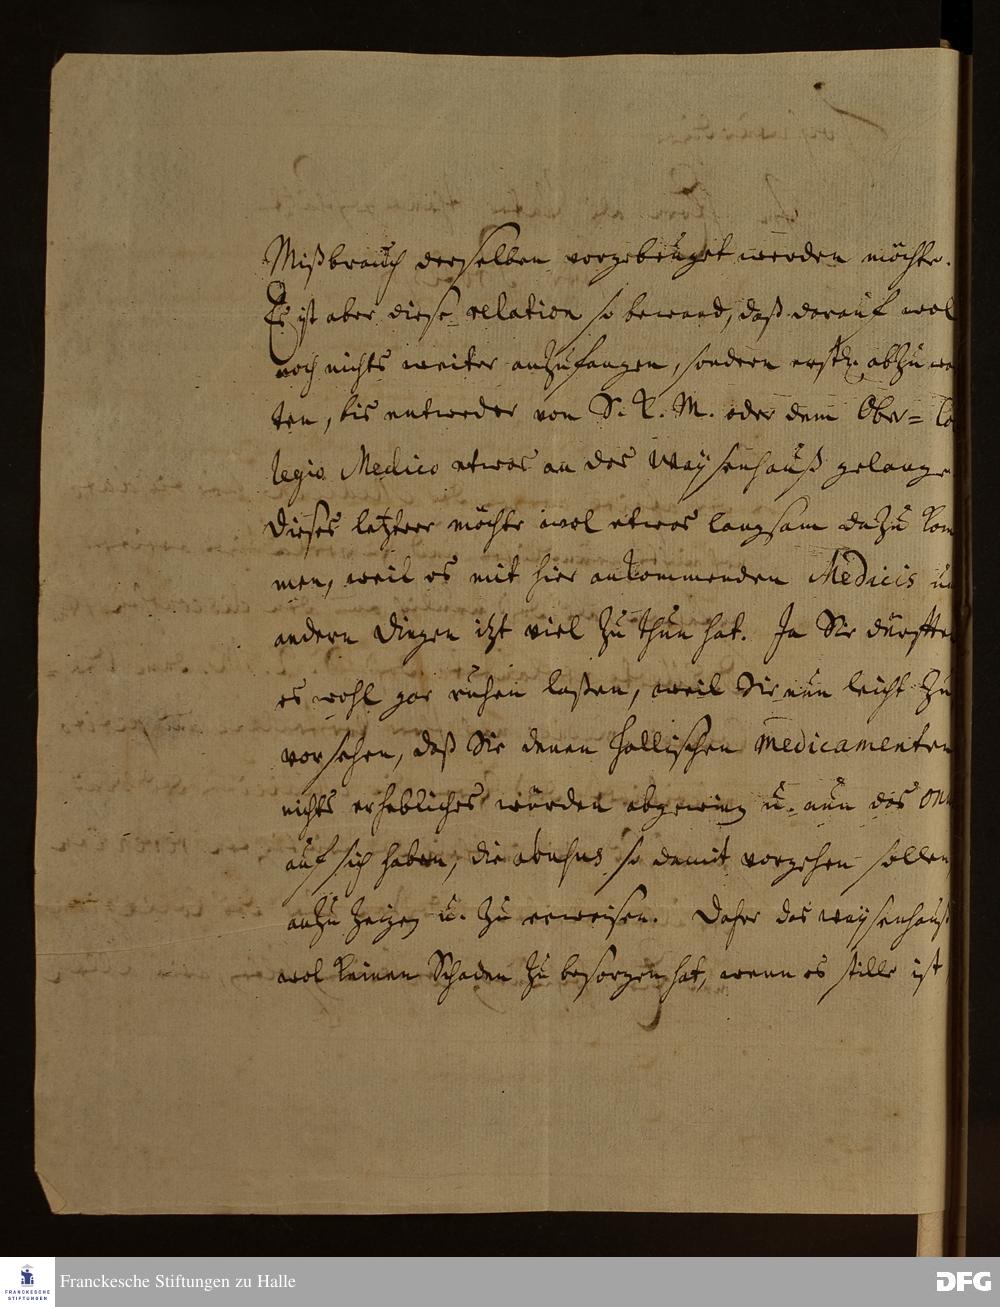 Mißbrauch derselben vorgebeuget werden möchte.
Es ist aber diese relation so bewand, daß darauf wol
noch nichts weiter anzufangen, sondern erstl. abzuwa
ten, bis entweder von S. K. M. oder dem Ober= Co
legio Medico etwas an das Waysenhauß gelange
Dieses letztere möchte wol etwas langsam dazu kom
men, weil es mit hier ankommenden Medicis u
andern Dingen itzt viel zu thun hat. Ja Sie dürffte
es wohl gar ruhen laßen, weil Sie nun leicht zu
vorsehen, daß Sie denen Hallischen medicamenten
nichts erhebliches würden abgewinn u. nun das on
auf sich haben, die abusus so damit vorgehen sollen
anzuzeigen u. zu erweisen. Daher das Waysenhauß
wol keinen Schaden zu besorgen hat, wenn es stille ist
FRANCKESCHE STIFTUNGEN
Franckesche Stiftungen zu Halle
DFG